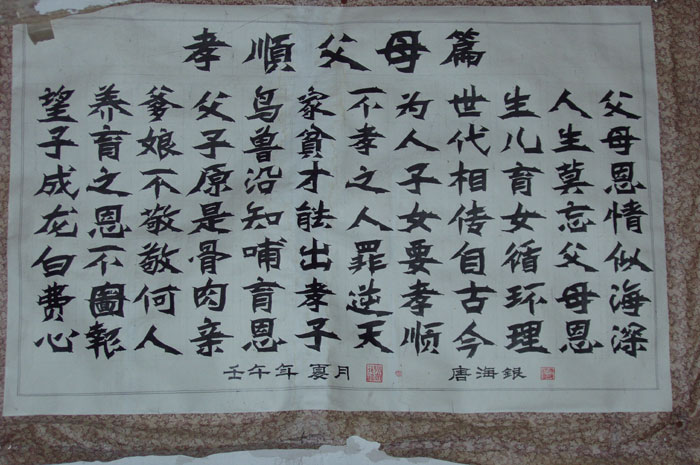 孝順父母篇
父母恩情似海深
人生莫忘父母恩
生儿育女循环理
世代相传自古今
为人子女要孝顺
不孝之人罪逆天
家貧才能出孝子
鸟兽沿知哺育恩
父子原是骨肉亲
爹娘不敬敬何人
养育之恩不圖報
望子成龙白费心
壬午年夏月
唐海银